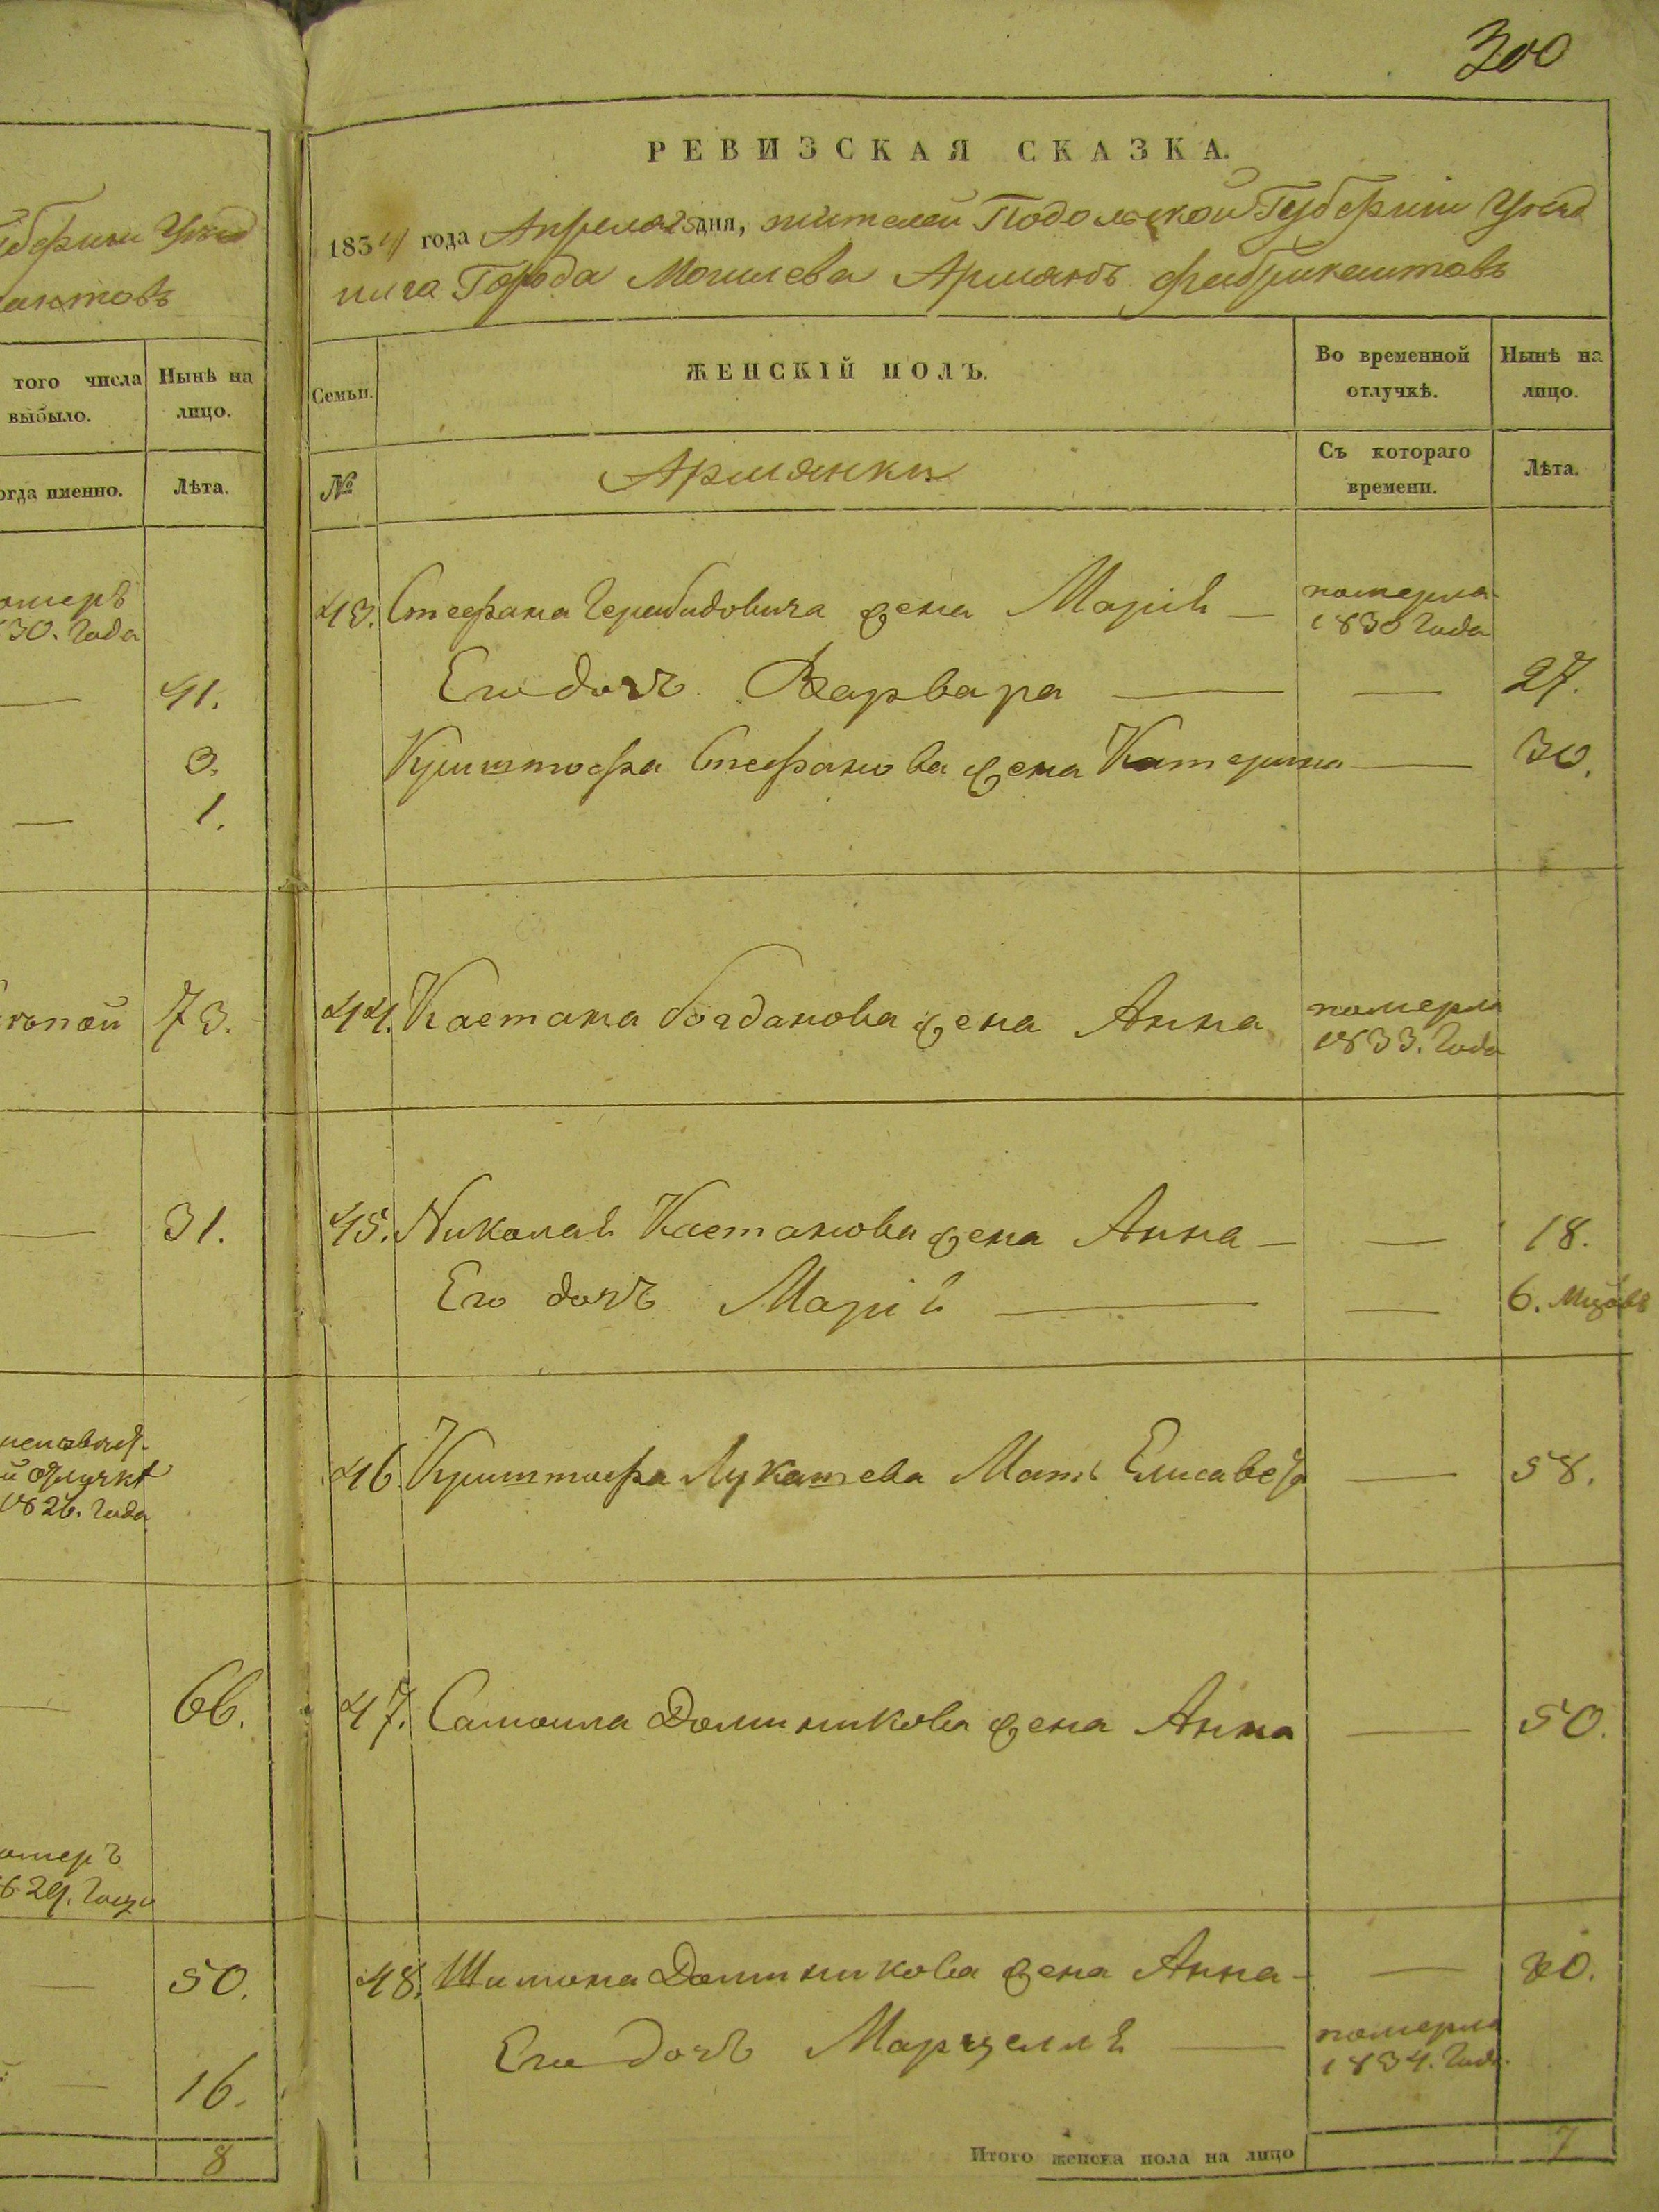 300
губерніи Уѣзд
антовъ
того числа выбыло.
Нынѣ на лицо.
когда именно.
Лѣта.
померъ
30. Года
41.
3.
1.
73.
31.
отлучкѣ
1826. Года
66.
померъ
1829. Года
50.
16.
8
РЕВИЗСКАЯ СКАЗКА.
1834 года Апреля 25 дня, жителей Подольской Губерніи Уѣзд
наго Города Могилева Армянъ фабрикантовъ
Семьи.
ЖЕНСКІЙ ПОЛЪ.
Во временной отлучкѣ.
Нынѣ на лицо.
№
Армянки
Съ котораго времени.
Лѣта.
43. Стефана жена Марія — померла 1830 Года
Его дочь Варвара — — 27.
Криштофа Стефанова жена Катерина — 30.
44. Каетана Богданова жена Анна померла 1833. Года
45. Николая Каетанова жена Анна — — 18.
Его дочь Марія — — 6. мцовъ
46. Криштофа Лукашева Мать Елисавета — 58.
47. Самоила Доминикова жена Анна — 50.
48. Шимона Доминикова жена Анна — — 30.
Его дочь Марцелля — померла 1834. Года.
Итого женска пола на лицо 7